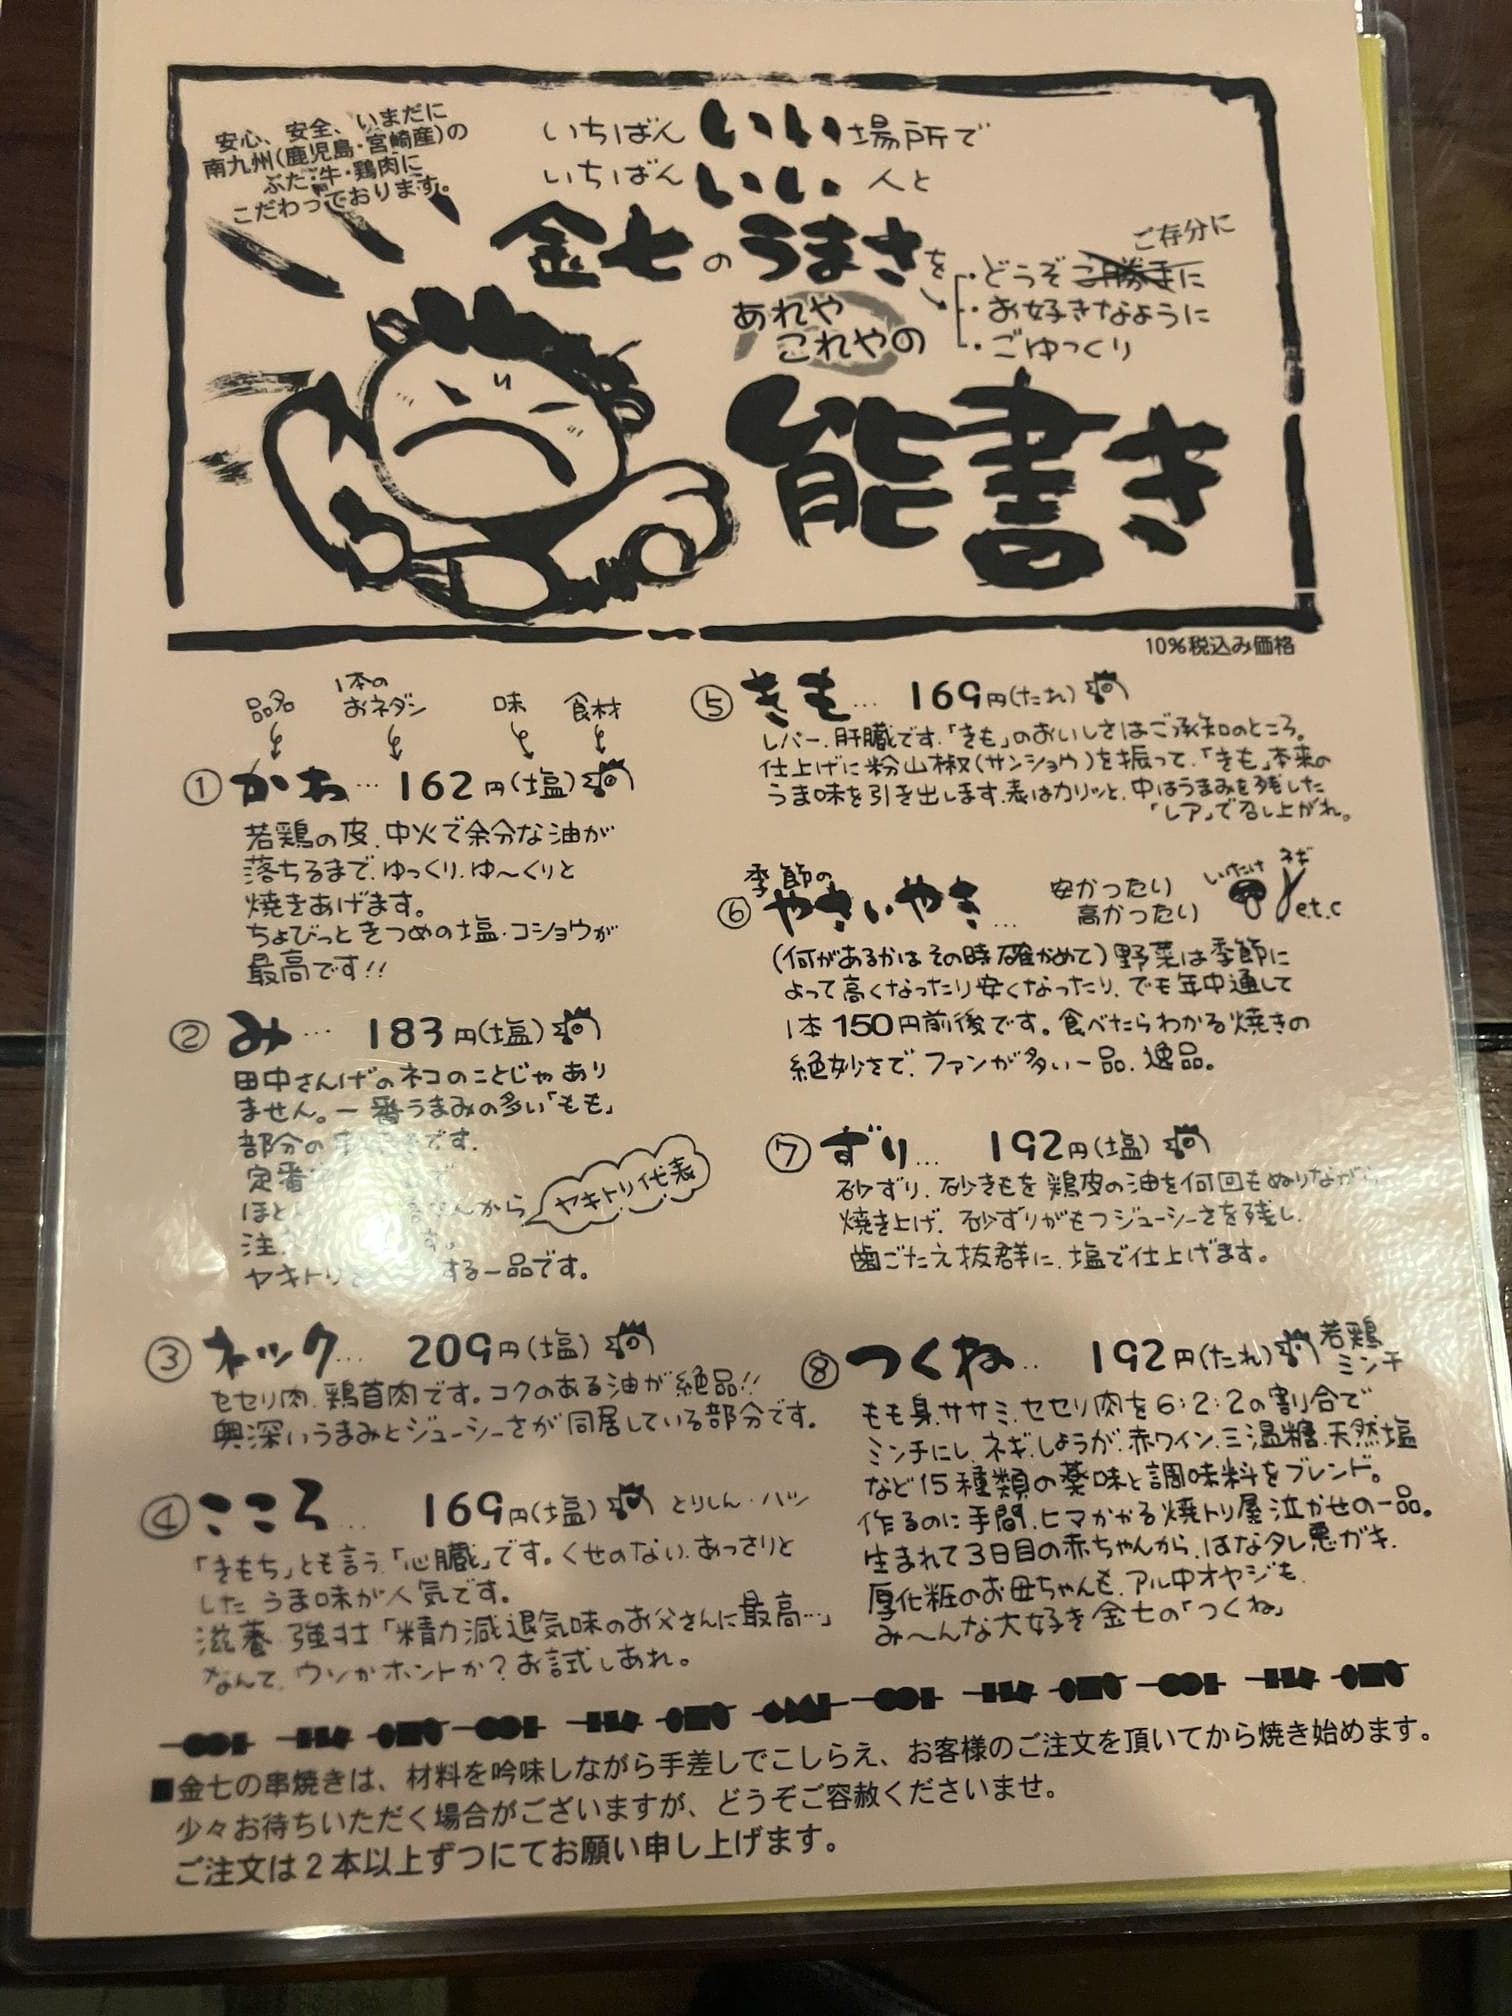 安心、安全、いまだに
南九州(鹿児島・宮崎産)の
ぶた・牛・鶏肉に
こだわっております。
いちばんいい場所で
いちばんいい人と
金七のうまさを
ご存分に
・どうぞご勝手に
・お好きなように
・ごゆっくり
あれや
これやの
能書き
10%税込み価格
品名
1本の
おネダン
味
食材
① かわ… 162円(塩)
若鶏の皮、中火で余分な油が
落ちるまで、ゆっくり、ゆ〜くりと
焼きあげます。
ちょびっときつめの塩・コショウが
最高です!!
② み… 183円(塩)
田中さんげのネコのことじゃあり
ません。一番うまみの多い「もも」
部分の
定番
ほと んから
注
ヤキトリ する一品です。
ヤキトリ代表
③ ネック… 209円(塩)
セセリ肉、鶏首肉です。コクのある油が絶品!!
奥深いうまみとジューシーさが同居している部分です。
④ こころ… 169円(塩) とりしん・ハツ
「きもち」とも言う、「心臓」です。くせのない、あっさりと
したうま味が人気です。
滋養強壮「精力減退気味のお父さんに最高…」
なんて、ウソかホントか?お試しあれ。
⑤ きも… 169円(たれ)
レバー、肝臓です。「きも」のおいしさはご承知のところ。
仕上げに粉山椒(サンショウ)を振って、「きも」本来の
うま味を引き出します。表はカリッと、中はうまみを残した
「レア」で召し上がれ。
⑥ 季節のやさいやき…
安かったり
高かったり
いけたけ
ネギ
e.t.c
(何があるかはその時確かめて)野菜は季節に
よって高くなったり安くなったり、でも年中通して
1本150円前後です。食べたらわかる焼きの
絶妙さで、ファンが多い一品、逸品。
⑦ ずり… 192円(塩)
砂ずり、砂きもを鶏皮の油を何回もぬりながら
焼き上げ、砂ずりがもつジューシーさを残し、
歯ごたえ抜群に、塩で仕上げます。
⑧ つくね… 192円(たれ) 若鶏
ミンチ
もも身、ササミ、セセリ肉を6:2:2の割合で
ミンチにし、ネギ、しょうが、赤ワイン、三温糖、天然塩
など15種類の薬味と調味料をブレンド。
作るのに手間、ヒマかかる焼トリ屋泣かせの一品。
生まれて3日目の赤ちゃんから、はなタレ悪ガキ、
厚化粧のお母ちゃんも、アル中オヤジも、
み〜んな大好き金七の「つくね」
■金七の串焼きは、材料を吟味しながら手差しでこしらえ、お客様のご注文を頂いてから焼き始めます。
少々お待ちいただく場合がございますが、どうぞご容赦くださいませ。
ご注文は2本以上ずつにてお願い申し上げます。